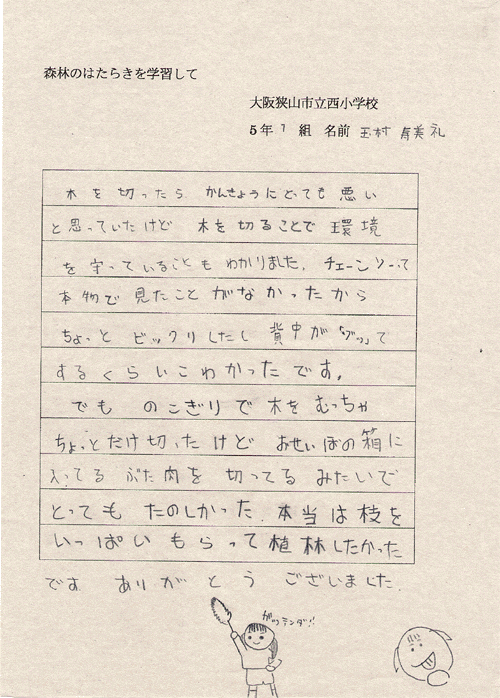 森林のはたらきを学習して
大阪狭山市立西小学校
5年 1 組 名前 玉村 有美礼
木を切ったら かんきょうにとても悪い
と思っていたけど 木を切ることで環境
を守っていることもわかりました。チェーンソーって
本物で見たことがなかったから
ちょっとビックリしたし 背中が「ゾッ」って
するくらいこわかったです。
でも のこぎりで木をむっちゃ
ちょっとだけ切ったけど おせいぼの箱に
入ってるぶた肉を切ってるみたいで
とってもたのしかった。本当は枝を
いっぱいもらって植林したかった
です。ありがとうございました。